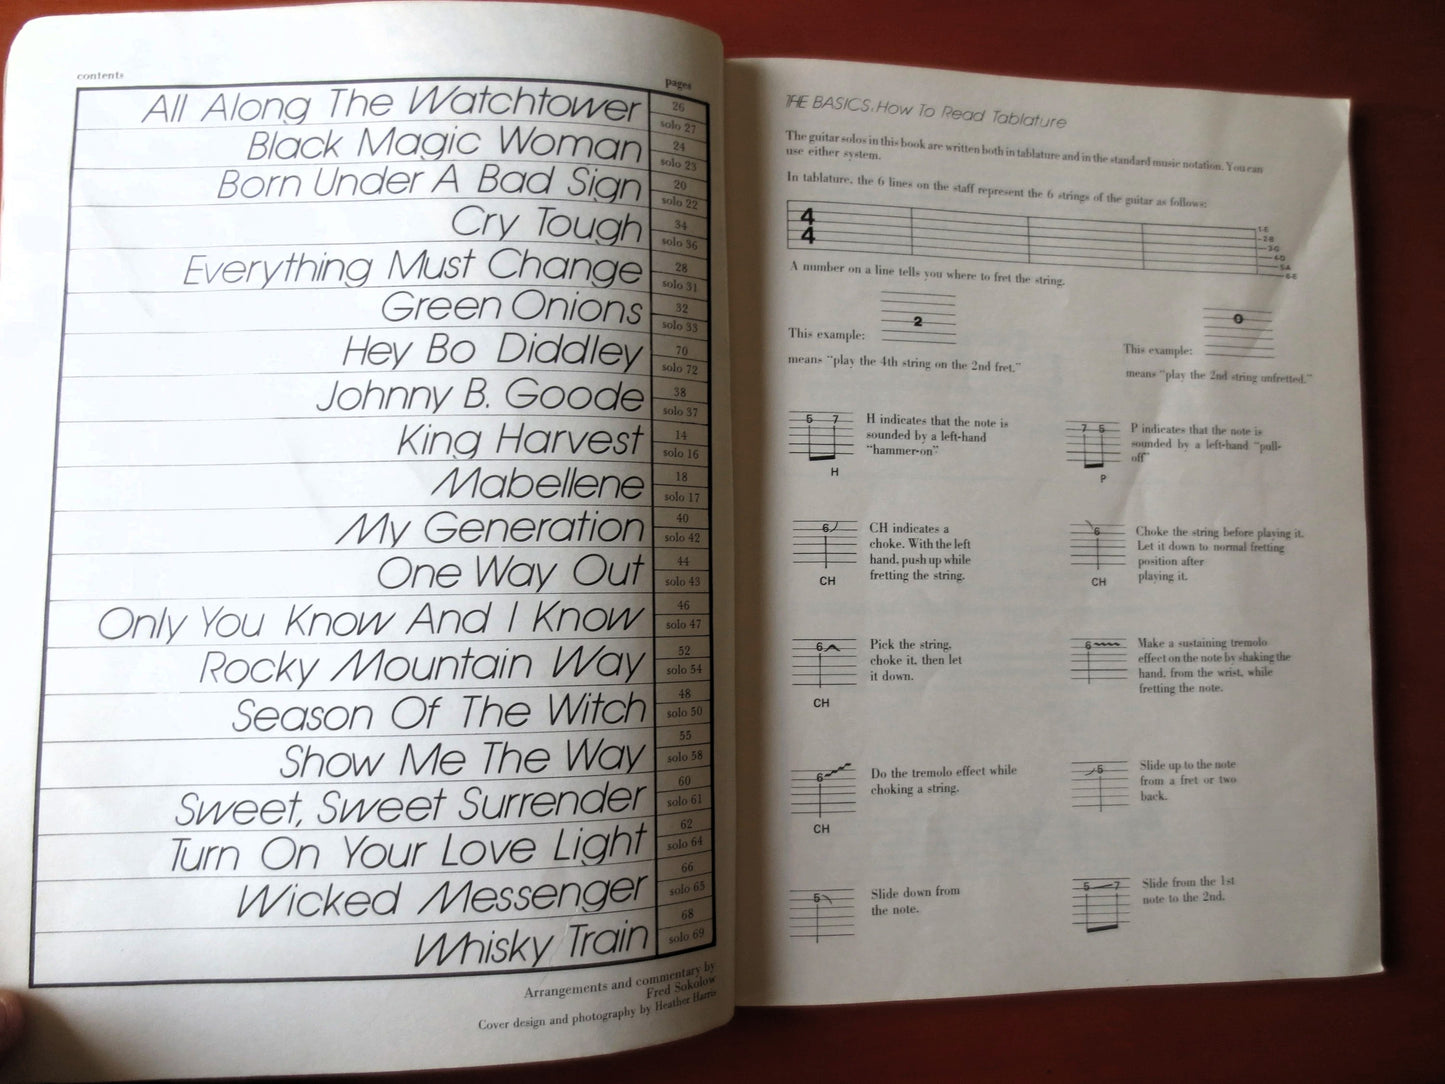 contents
pages
All Along The Watchtower
26
solo 27
Black Magic Woman
24
solo 23
Born Under A Bad Sign
20
solo 22
Cry Tough
34
solo 36
Everything Must Change
28
solo 31
Green Onions
32
solo 33
Hey Bo Diddley
70
solo 72
Johnny B. Goode
38
solo 37
King Harvest
14
solo 16
Mabellene
18
solo 17
My Generation
40
solo 42
One Way Out
44
solo 43
Only You Know And I Know
46
solo 47
Rocky Mountain Way
52
solo 54
Season Of The Witch
48
solo 50
Show Me The Way
55
solo 58
Sweet, Sweet Surrender
60
solo 61
Turn On Your Love Light
62
solo 64
Wicked Messenger
66
solo 65
Whisky Train
68
solo 69
Arrangements and commentary by
Fred Sokolow
Cover design and photography by Heather Harris
THE BASICS, How To Read Tablature
The guitar solos in this book are written both in tablature and in the standard music notation. You can
use either system.
In tablature, the 6 lines on the staff represent the 6 strings of the guitar as follows:
4
4
1-E
2-B
3-G
4-D
5-A
6-E
A number on a line tells you where to fret the string.
This example:
2
means "play the 4th string on the 2nd fret."
This example:
0
means "play the 2nd string unfretted."
5 7
H
H indicates that the note is
sounded by a left-hand
"hammer-on"
7 5
P
P indicates that the note is
sounded by a left-hand "pull-
off"
6
CH
CH indicates a
choke. With the left
hand, push up while
fretting the string.
6
CH
Choke the string before playing it.
Let it down to normal fretting
position after
playing it.
6
CH
Pick the string,
choke it, then let
it down.
6
Make a sustaining tremolo
effect on the note by shaking the
hand, from the wrist, while
fretting the note.
6
CH
Do the tremolo effect while
choking a string.
5
Slide up to the note
from a fret or two
back.
5
Slide down from
the note.
5 7
Slide from the 1st
note to the 2nd.